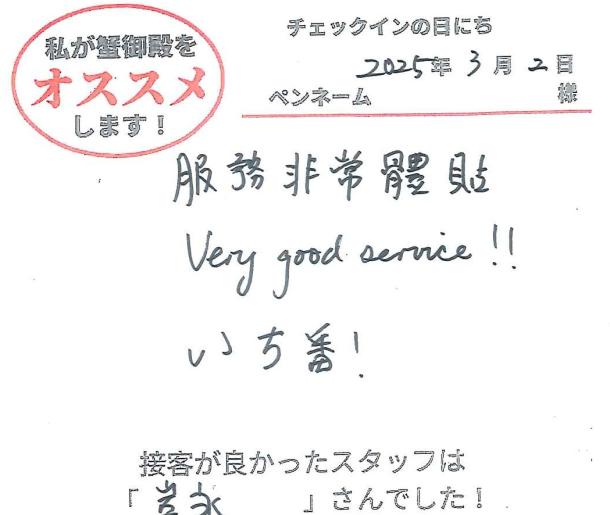 私が蟹御殿を
オススメ
します！
チェックインの日にち
2025年 3月 2日
ペンネーム 様
服務非常體貼
Very good service!!
いち番!
接客が良かったスタッフは
「岩永」さんでした！